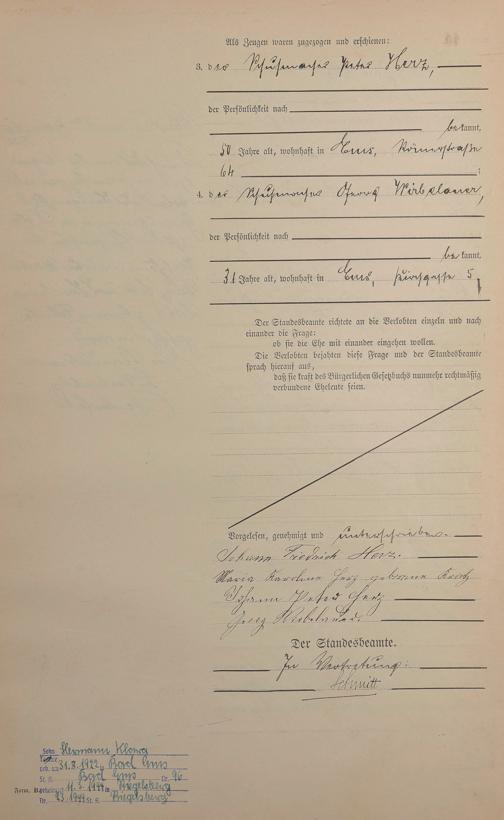 Als Zeugen waren zugezogen und erschienen:
3. der Schuhmacher Peter Herz,
der Persönlichkeit nach
bekannt,
50 Jahre alt, wohnhaft in Ems, Römerstraße
64 ;
4. der Schuhmacher Georg Wirbelauer,
der Persönlichkeit nach
bekannt,
31 Jahre alt, wohnhaft in Ems, 5
Der Standesbeamte richtete an die Verlobten einzeln und nach
einander die Frage:
ob sie die Ehe mit einander eingehen wollen.
Die Verlobten bejahten diese Frage und der Standesbeamte
sprach hierauf aus,
daß sie kraft des Bürgerlichen Gesetzbuchs nunmehr rechtmäßig
verbundene Eheleute seien.
Vorgelesen, genehmigt und unterschrieben.
Johann Friedrich Herz.
Maria Karoline Herz geborene
Johann Peter Herz
Georg Wirbelauer.
Der Standesbeamte.
In Vertretung:
Schmitt
Sohn Hermann
geb. am 31.8.1922 Bad Ems
St. A. Bad Ems Nr. 96
Form. B